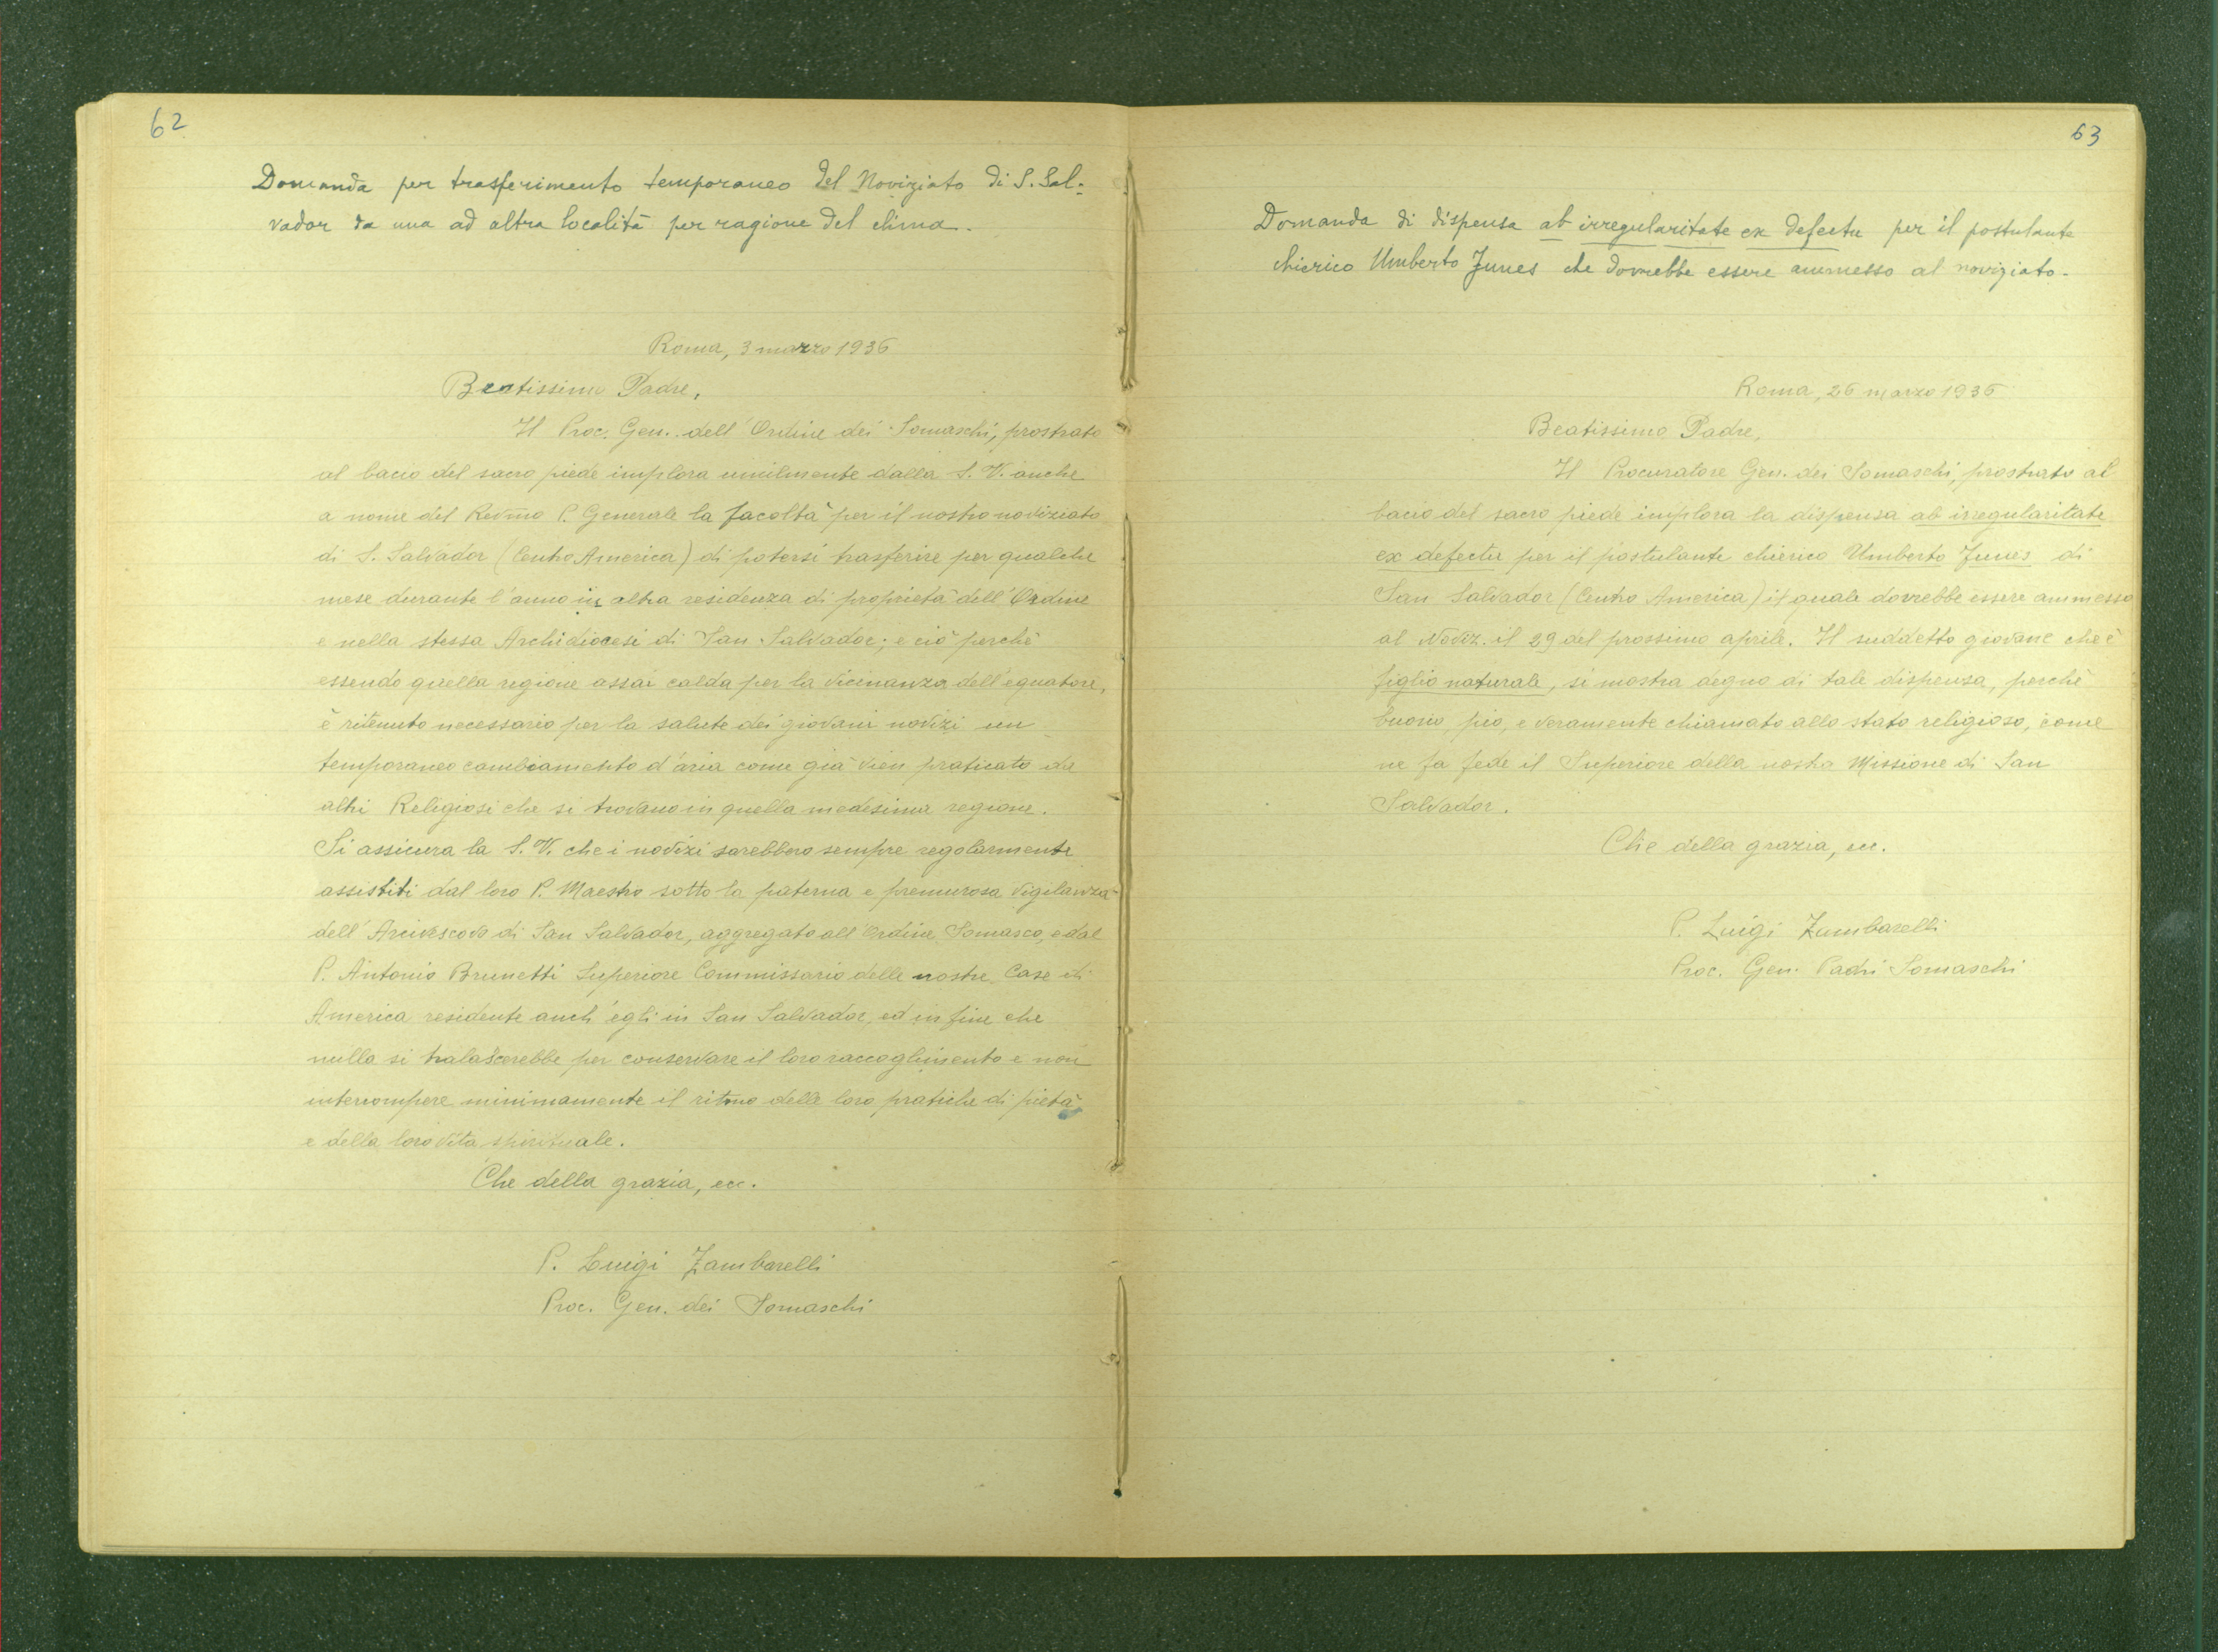 62
Domanda per trasferimento temporaneo del Noviziato di S. Sal=
vador da una ad altra località per ragione del clima.
Roma, 3 marzo 1936
Beatissimo Padre,
Il Proc. Gen. dell'Ordine dei Somaschi, prostrato
al bacio del sacro piede implora umilmente dalla S. V. anche
a nome del Revmo P. Generale la facoltà per il nostro noviziato
di S. Salvador (Centro America) di potersi trasferire per qualche
mese durante l'anno in altra residenza di proprietà dell'Ordine
e nella stessa Archidiocesi di San Salvador; e ciò perchè
essendo quella regione assai calda per la vicinanza dell'equatore,
è ritenuto necessario per la salute dei giovani novizi un
temporaneo cambiamento d'aria come già vien praticato da
altri Religiosi che si trovano in quella medesima regione.
Si assicura la S. V. che i novizi sarebbero sempre regolarmente
assistiti dal loro P. Maestro sotto la paterna e premurosa vigilanza
dell'Arcivescovo di San Salvador, aggregato all'Ordine Somasco, e dal
P. Antonio Brunetti Superiore Commissario delle nostre Case di
America residente anch'egli in San Salvador, ed in fine che
nulla si tralascerebbe per conservare il loro raccoglimento e non
interrompere minimamente il ritmo delle loro pratiche di pietà
e della loro vita spirituale.
Che della grazia, ecc.
P. Luigi Zambarelli
Proc. Gen. dei Somaschi
63
Domanda di dispensa ab irregularitate ex defectu per il postulante
chierico Umberto Junes che dovrebbe essere ammesso al noviziato.
Roma, 26 marzo 1936
Beatissimo Padre,
Il Procuratore Gen. dei Somaschi, prostrato al
bacio del sacro piede implora la dispensa ab irregularitate
ex defectu per il postulante chierico Umberto Junes di
San Salvador (Centro America) il quale dovrebbe essere ammesso
al Noviz. il 29 del prossimo aprile. Il suddetto giovane che è
figlio naturale, si mostra degno di tale dispensa, perchè
buono, pio, e veramente chiamato allo stato religioso, come
ne fa fede il Superiore della nostra Missione di San
Salvador.
Che della grazia, ecc.
P. Luigi Zambarelli
Proc. Gen. Padri Somaschi